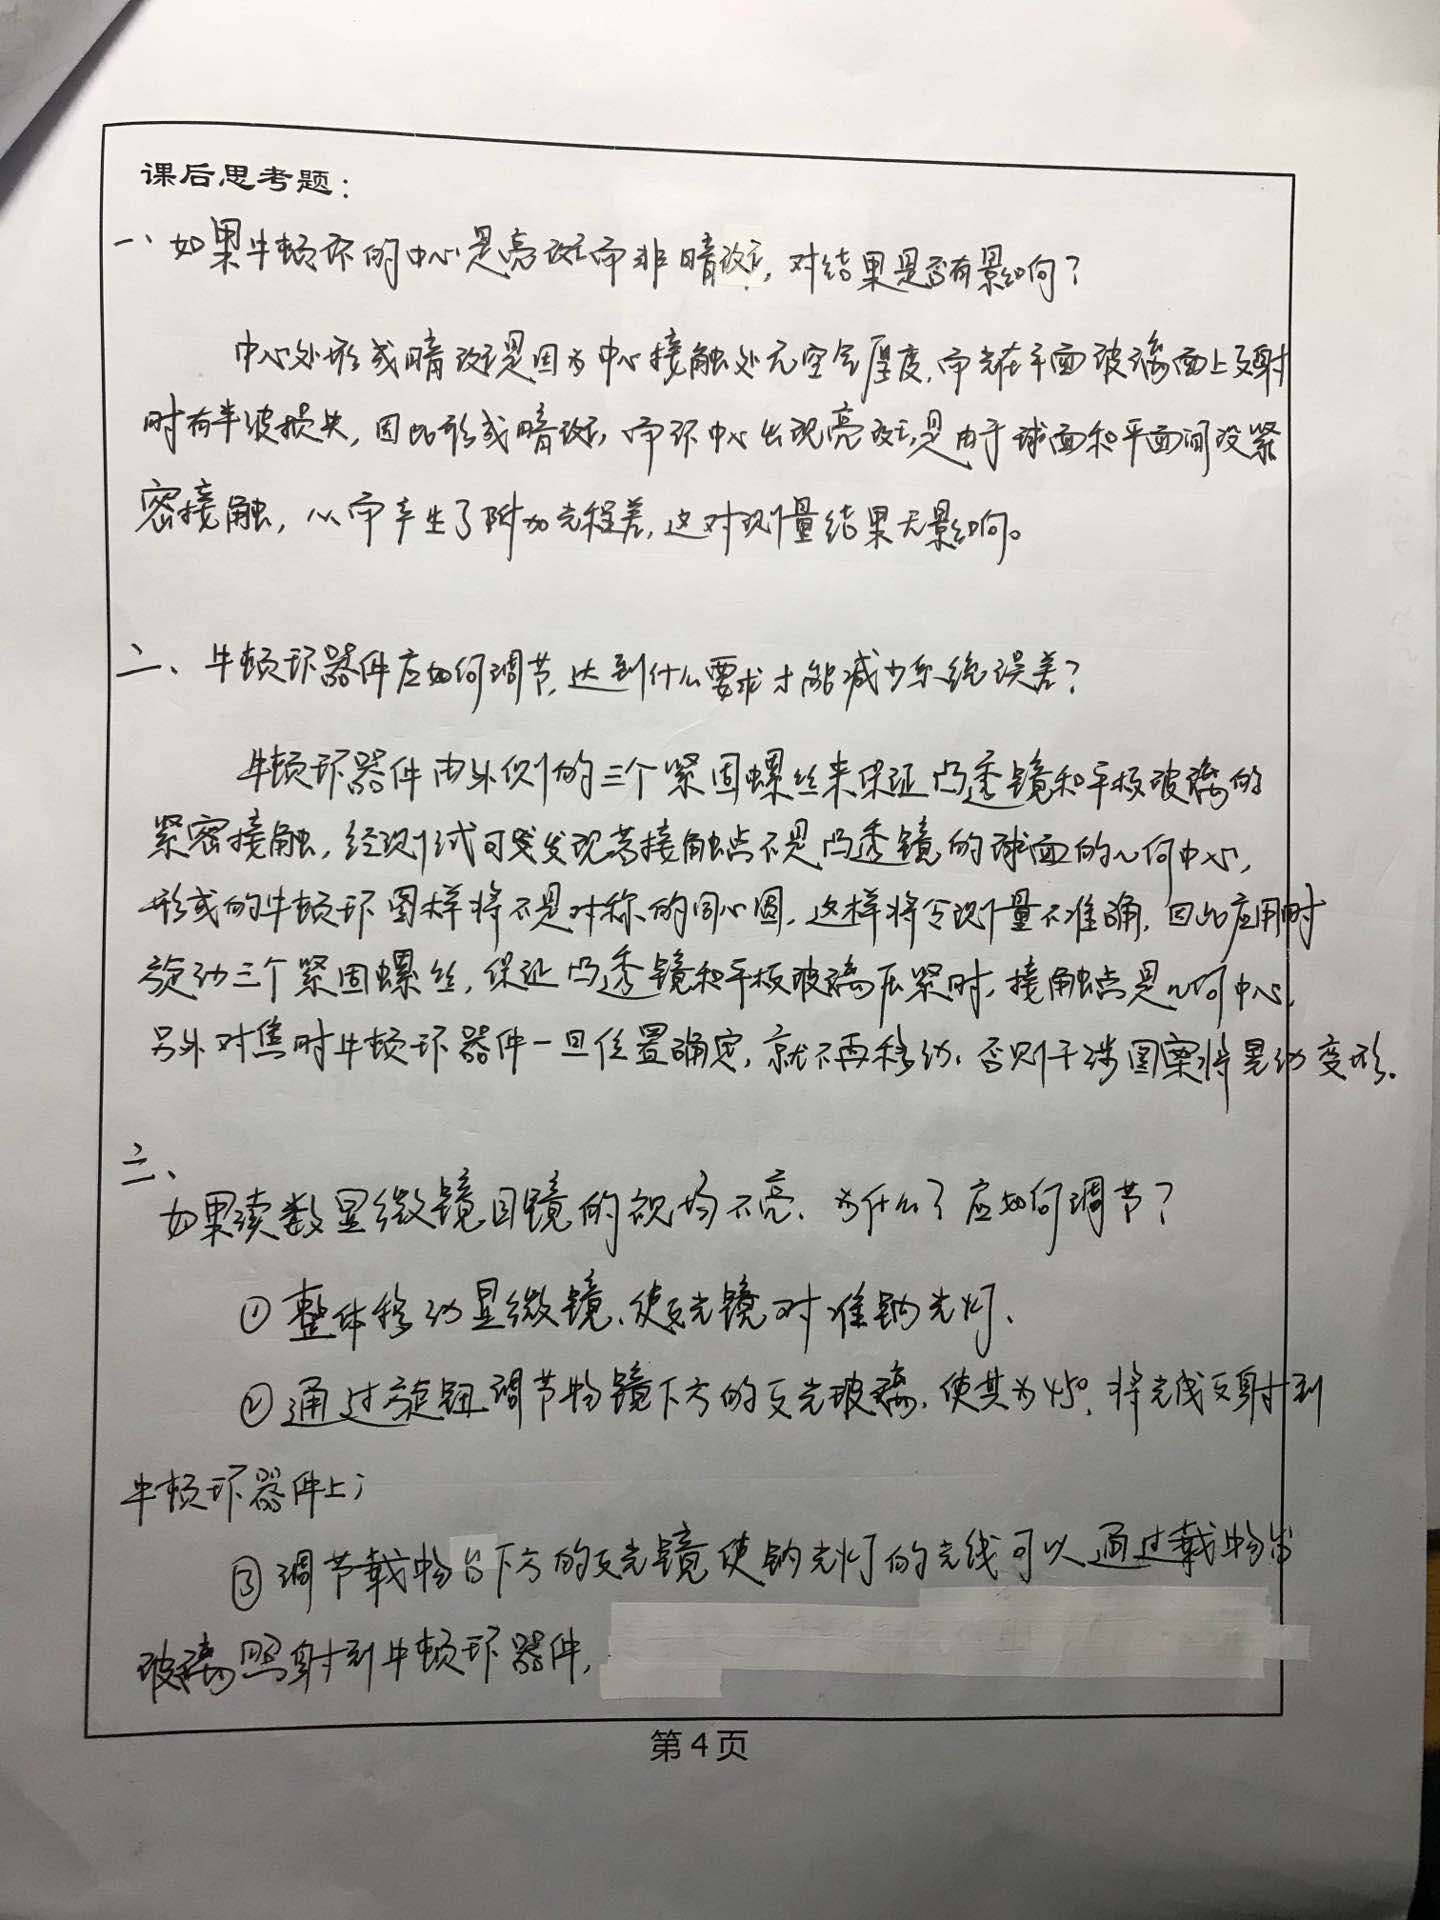 课后思考题：
一、如果牛顿环的中心是亮斑而非暗斑，对结果是否有影响？
中心处形成暗斑是因为中心接触处无空气厚度，而光在平面玻璃面上反射
时有半波损失，因此形成暗斑，而环中心出现亮斑是由于球面和平面间没紧
密接触，从而产生了附加光程差，这对测量结果无影响。
二、牛顿环器件应如何调节，达到什么要求才能减少系统误差？
牛顿环器件由外侧的三个紧固螺丝来保证凸透镜和平板玻璃的
紧密接触，经测试可发现若接触点不是凸透镜的球面的几何中心，
形成的牛顿环图样将不是对称的同心圆，这样将令测量不准确，因此应用时
旋动三个紧固螺丝，保证凸透镜和平板玻璃压紧时，接触点是几何中心，
另外对焦时牛顿环器件一旦位置确定，就不再移动，否则干涉图案将晃动变形.
三、
如果读数显微镜目镜的视场不亮，为什么？应如何调节？
①整体移动显微镜，使反光镜对准钠光灯.
②通过旋钮调节物镜下方的反光玻璃，使其为45°，将光线反射到
牛顿环器件上；
③调节载物台下方的反光镜使钠光灯的光线可以通过载物台
玻璃照射到牛顿环器件，
第4页